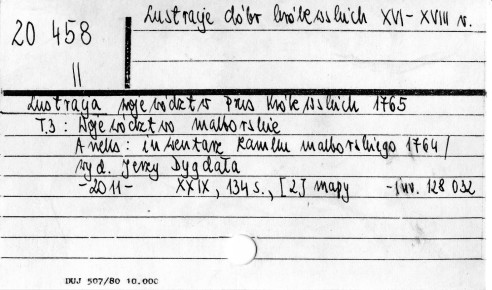 Lustracje dóbr królewskich XVI-XVIII w.
20 458
II
Lustracja województw Prus Królewskich 1765
T.3: Województwo malborskie
Aneks: inwentarz zamku malborskiego 1764/
wyd. Jerzy Dygdała
-2011- XXIX, 134 s., [2] mapy -inw. 128 032
DUJ 507/80 10.000